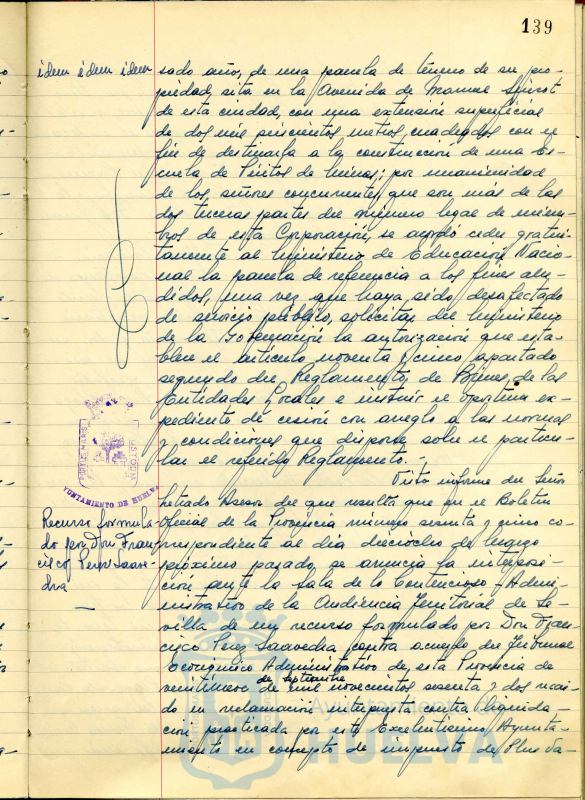 139
idem idem idem
sado año, de una parcela de terreno de su pro-
piedad, sita en la Avenida de Manuel Siurot
de esta ciudad, con una extensión superficial
de dos mil quinientos metros cuadrados con el
fin de destinarla a la construcción de una Es-
cuela de Peritos de Minas; por unanimidad
de los señores concurrentes, que son más de las
dos terceras partes del número legal de miem-
bros de esta Corporación, se acordó ceder gratui-
tamente al Ministerio de Educación Nacio-
nal la parcela de referencia a los fines alu-
didos, una vez que haya sido desafectado
de servicio público, solicitar del Ministerio
de la Gobernación la autorización que esta-
blece el artículo noventa y cinco apartado
segundo del Reglamento de Bienes de las
Entidades Locales e instruir el oportuno ex-
pediente de cesión con arreglo a las normas
y condiciones que dispone sobre el particu-
lar el referido Reglamento.-
AYUNTAMIENTO DE HUELVA
Recurso formula-
do por Don Fran-
cisco Perez Saave-
dra
Visto informe del Señor
Letrado Asesor del que resulta que en el Boletín
Oficial de la Provincia número sesenta y cinco co-
rrespondiente al día dieciocho de Marzo
próximo pasado, se anuncia la interposi-
ción ante la Sala de lo Contencioso-Admi-
nistrativo de la Audiencia Territorial de Se-
villa de un recurso formulado por Don Fran-
cisco Perez Saavedra contra acuerdo del Tribunal
Económico Administrativo de esta Provincia de
veintinueve de septiembre de mil novecientos sesenta y dos recaí-
do en reclamación interpuesta contra liquida-
ción practicada por este Excelentísimo Ayunta-
miento en concepto de impuesto de Plus Va-
Ayuntamiento
HUELVA